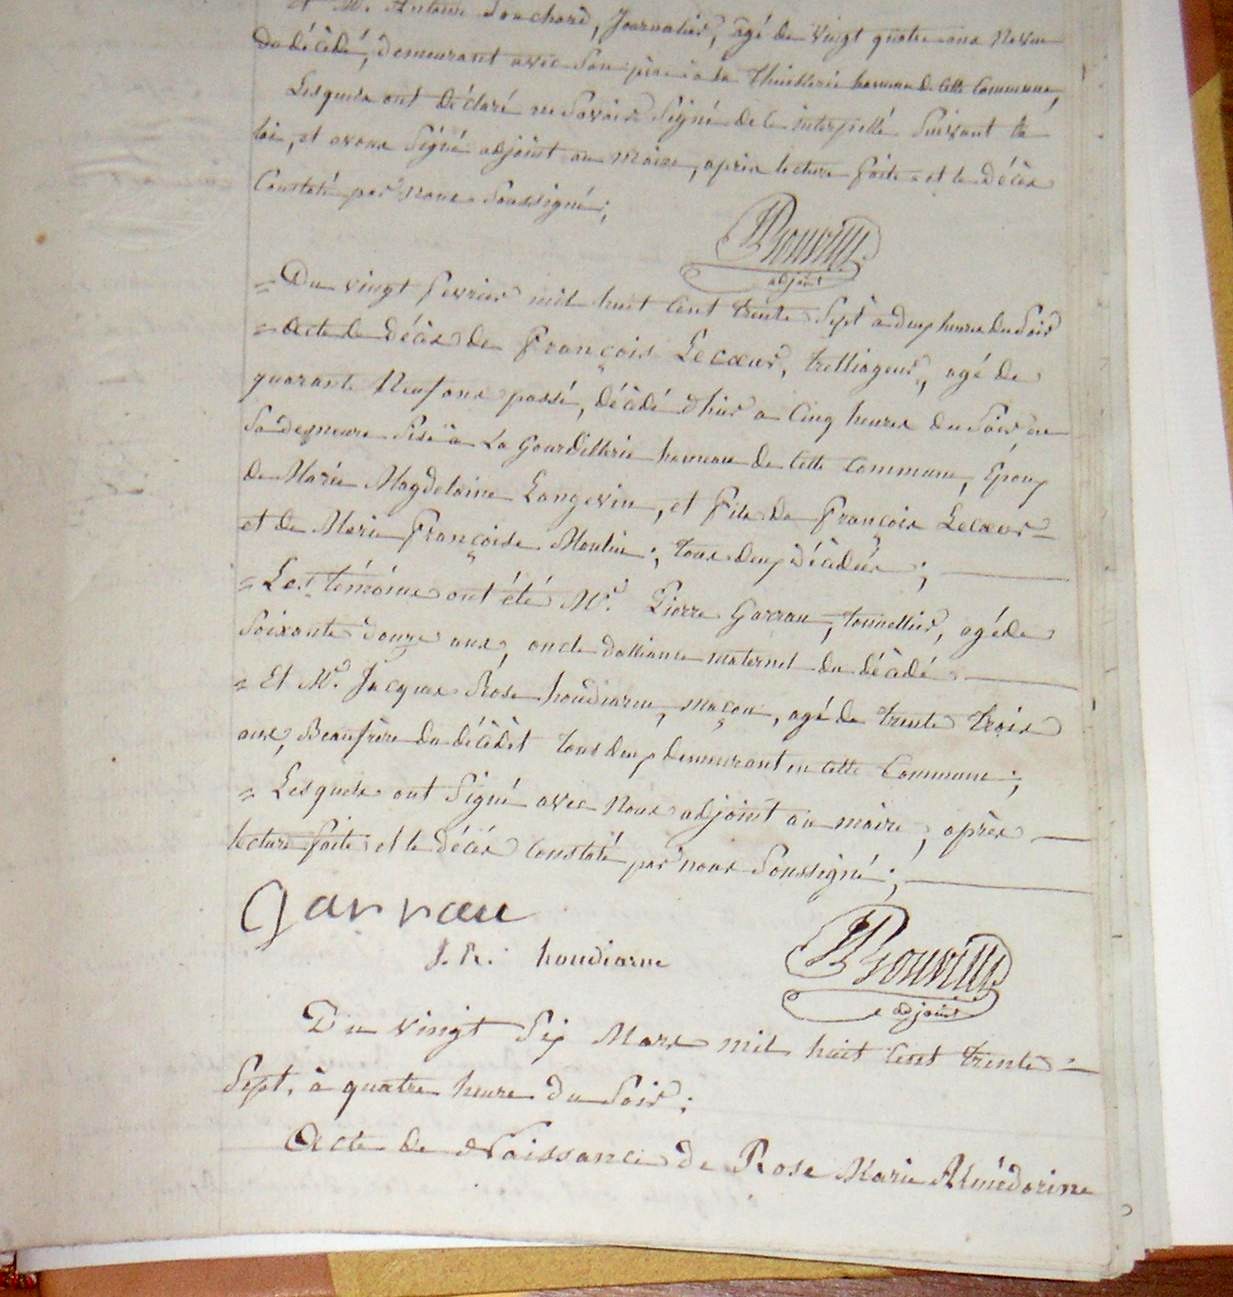 Et Mr. Antoine Souchard, Journalier, agé de vingt quatre ans Neveu
du décédé, demeurant avec Son père à la Thuillerie hameau de cette Commune,
Lesquels ont déclaré ne Savoir Signé de ce interpellé Suivant la
loi, et avons Signé adjoint au Maire, après lecture faite et le décès
Constaté par nous Soussigné;
Bouvill
adjoint
= Du vingt fevrier mil huit Cent trente Sept à deux heures du Soir
= Acte de décès de François Lecœur, treillageur, agé de
quarante Neuf ans passé, décédé d'hier a Cinq heures du Soir, en
Sa demeure Sise à La Gourdellerie hameau de Cette Commune, Epoux
de Marie Magdelaine Langevin, et fils de François Lecœur
et de Marie Françoise Moulin; tous deux décédés;
= Les témoins ont été Mr. Pierre Garrau, tonnellier, agé de
Soixante douze ans, oncle d'alliance maternel du décédé
= Et Mr. Jacques Rose houdiarne, maçon, agé de trente trois
ans, Beaufrère du décédét tous deux demeurant en cette Commune;
= Lesquels ont Signé avec Nous adjoint au maire, après
lecture faite et le décès Constaté par nous Soussigné;
Garrau
J. R. houdiarne
Bouvill
adjoint
Du vingt Six Mars mil huit Cent trente =
Sept, à quatre heure du Soir;
Acte de Naissance de Rose Marie Almédorine